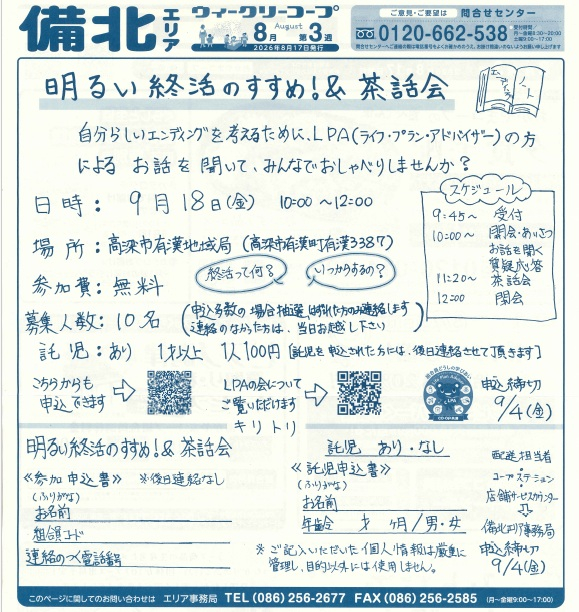 備北エリア
ウィークリーコープ
8月 August 第3週
2026年8月17日発行
ご意見・ご要望は 問合せセンター
0120-662-538
受付時間／月～金曜9:30～20:00
土曜9:00～17:00
明るい終活のすすめ!&茶話会
エンディングノート
自分らしいエンディングを考えるために、LPA(ライフ・プラン・アドバイザー)の方
による お話を聞いて、みんなでおしゃべりしませんか?
日時: 9月18日(金) 10:00~12:00
場所: 高梁市有漢地域局 (高梁市有漢町有漢3387)
参加費: 無料
終活って何?
いつからするの?
募集人数: 10名
(申込多数の場合抽選、はずれた方のみ連絡します
連絡のなかった方は、当日お越し下さい)
託児: あり 1才以上 1人100円 [託児を申込された方には、後日連絡させて頂きます]
スケジュール
9:45~ 受付
10:00~ 開会・あいさつ
お話を聞く
質疑応答
11:20~ 茶話会
12:00 閉会
こちらからも
申込できます
LPAの会について
ご覧いただけます
LPA
申込締切
9/4(金)
キリトリ
明るい終活のすすめ!&茶話会
《参加申込書》 ※後日連絡なし
(ふりがな)
お名前
組合員コード
連絡のつく電話番号
託児 あり・なし
《託児申込書》
(ふりがな)
お名前
年齢 才 ヶ月/男・女
※ご記入いただいた個人情報は厳重に
管理し、目的以外には使用しません。
配送担当者
コープステーション
店舗サービスカウンター
備北エリア事務局
申込締切
9/4(金)
このページに関してのお問い合わせは エリア事務局 TEL (086) 256-2677 FAX (086) 256-2585 (月～金曜9:00～17:00)